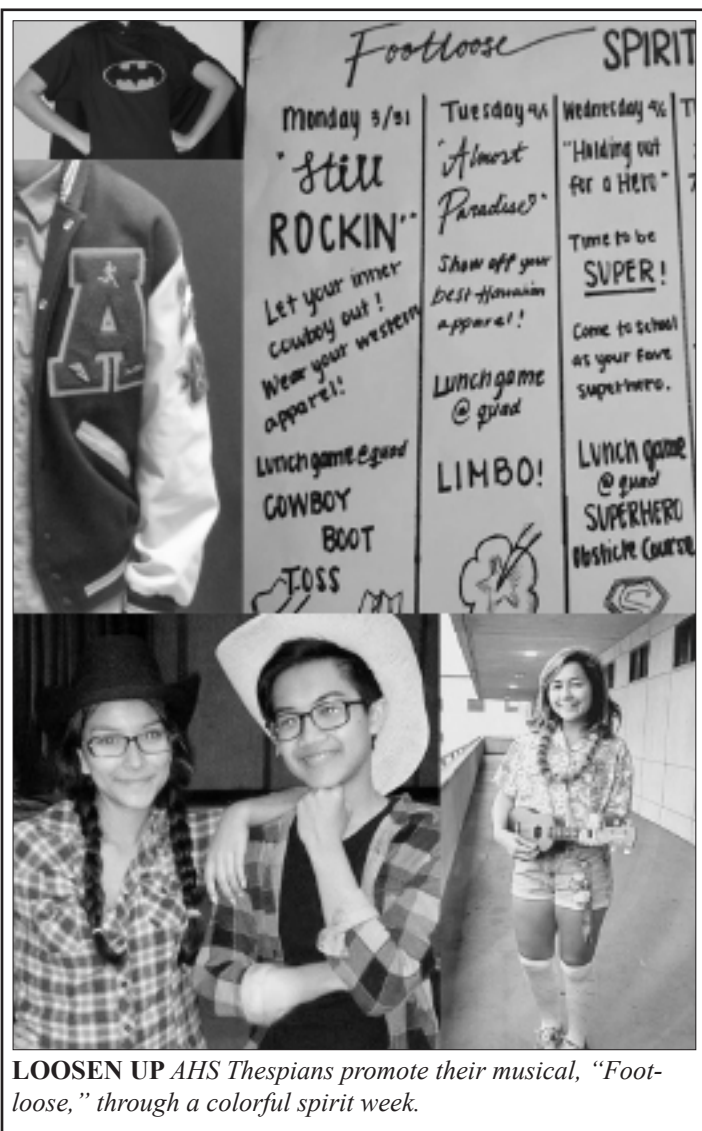 Footloose SPIRIT
Monday 3/31
"Still
ROCKIN'"
Let your inner
cowboy out!
Wear your western
apparel!
Lunch game @quad
COWBOY
BOOT
TOSS
Tuesday
"Almost
Paradise"
Show off your
best Hawaiian
apparel!
Lunch game
@ quad
LIMBO!
Wednesday
"Holding out
for a Hero"
Time to be
SUPER!
Come to school
as your fave
superhero.
Lunch game
@ quad
SUPERHERO
Obsticle Course
S
A
LOOSEN UP AHS Thespians promote their musical, "Foot-
loose," through a colorful spirit week.